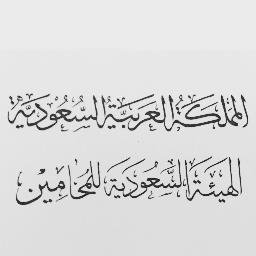 المملكة العربية السعودية
الهيئة السعودية للمحامين